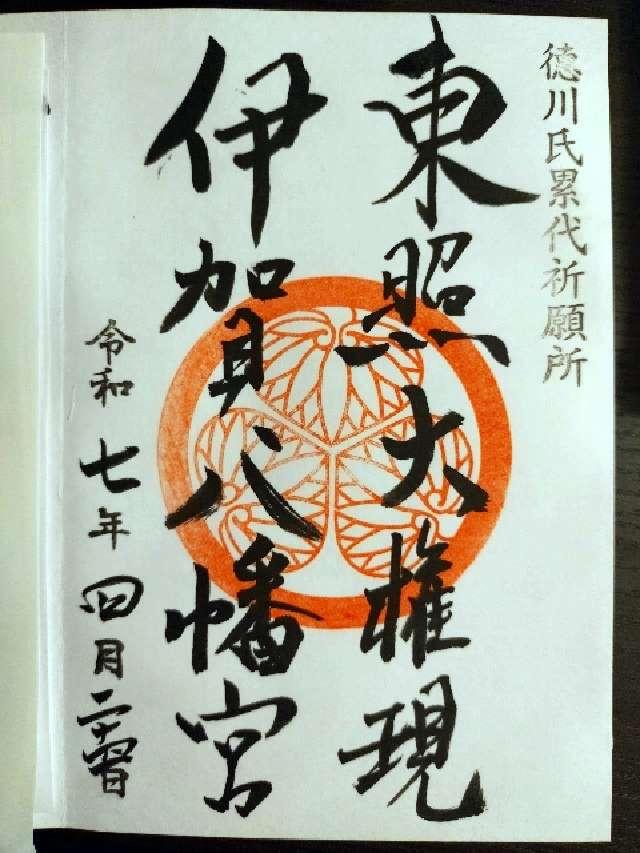 徳川氏累代祈願所
東照大権現
伊賀八幡宮
令和七年四月二十四日